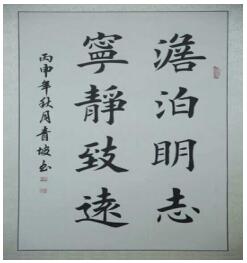 澹泊明志
寧靜致遠
丙申年秋月青坡书